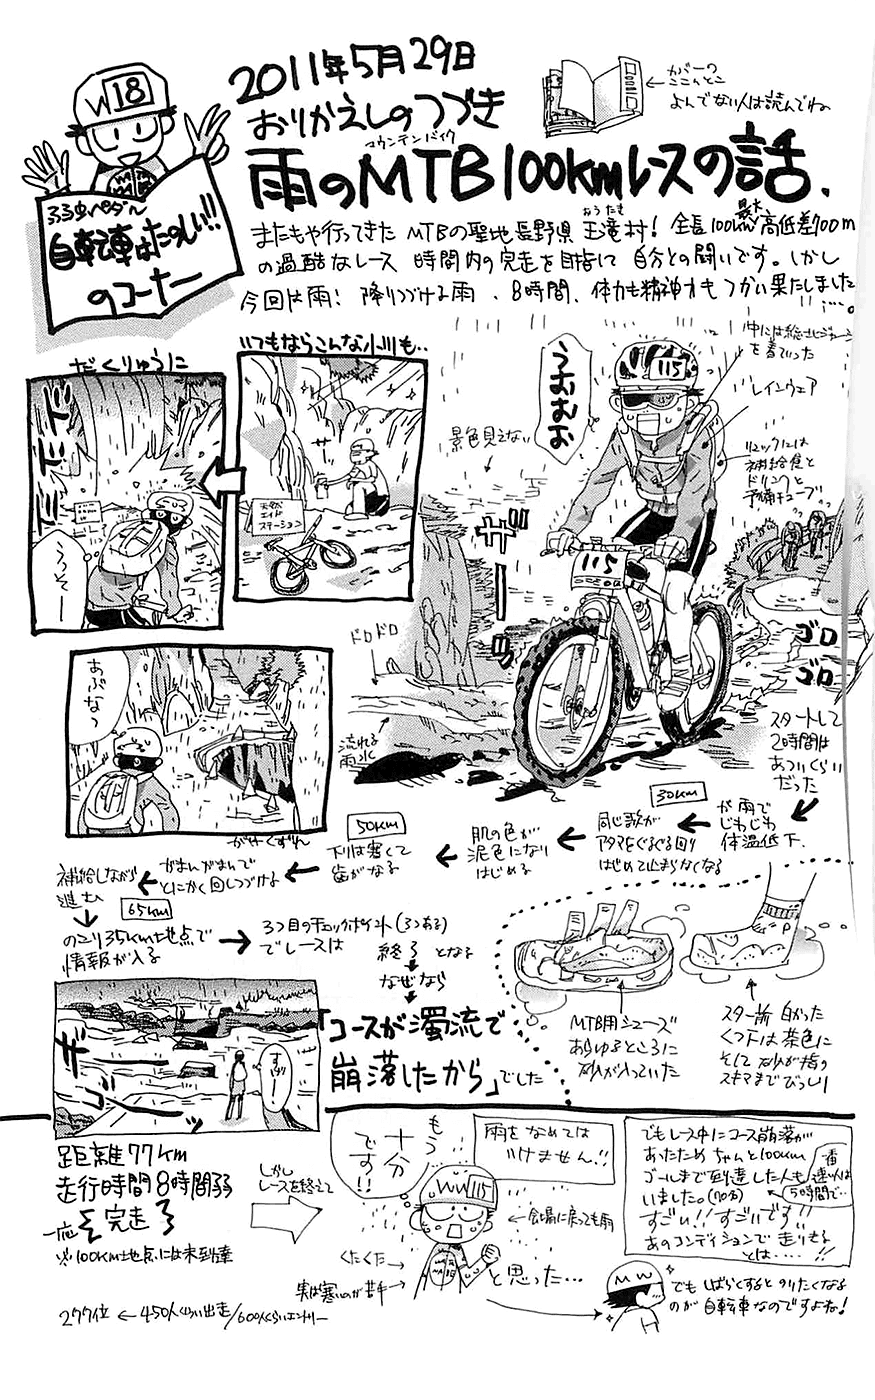 2011年5月29日
おりかえしのつづき
マウンテンバイク
雨のMTB100kmレースの話、
カバーの
ここんとこ
よんでない人は読んでね
W18
弱虫ペダル
自転車はたのしい!!
のコーナー
またもや行ってきた MTBの聖地長野県 玉滝村! 全長100km 最大高低差700m
おうたき
の過酷なレース 時間内の完走を目指して 自分との闘いです。しかし
今回は雨! 降りつづける雨、8時間、体力も精神力もつかい果たしました…。
だくりゅうに
ドドドド
うっそー
いつもならこんな小川も‥
天然
エイド
ステーション
うおむお
115
115
中には総北ジャージ
を着ていった
レインウェア
リュックには
補給食と
ドリンクと
予備チューブ
景色見えない
ザーッ
ゴロゴロ
ドロドロ
流れる
雨水
あぶなっ
がけくずれ
スタートして
2時間は
あついくらい
だった
が雨で
じわじわ
体温低下、
30km
同じ歌が
アタマをぐるぐる回り
はじめて止まらなくなる
肌の色が
泥色になり
はじめる
50km
下りは寒くて
歯がなる
がまんがまんで
とにかく回しつづける
補給しながら
進む
65km
のこり35km地点で
情報が入る
3つ目のチェックポイント(3つある)
でレースは
終了となる
なぜなら
「コースが濁流で
崩落したから」でした
MTB用シューズ
あらゆるところに
砂が入っていた
白かった
くつ下は茶色に
そして砂が指の
スキマまでびっしり
ザーッ
距離77km
走行時間8時間弱
一応 完走
※100km地点には未到達
277位 ← 450人くらい出走/600人くらいエントリー
しかし
レースを終えて
もう
十分
です!!
雨をなめては
いけません!!
WW115
会場に戻っても雨
くたくた
実は寒いのが苦手
と思った…
でもレース中にコース崩落が
あったため ちゃんと100km
ゴールまで到達した人も
いました。(70分)
一番
速い人は
5時間で…
すごい!! すごいです!!
あのコンディションで走りきる
とは……!!
MW
でも しばらくすると のりたくなる
のが 自転車なのですよね!